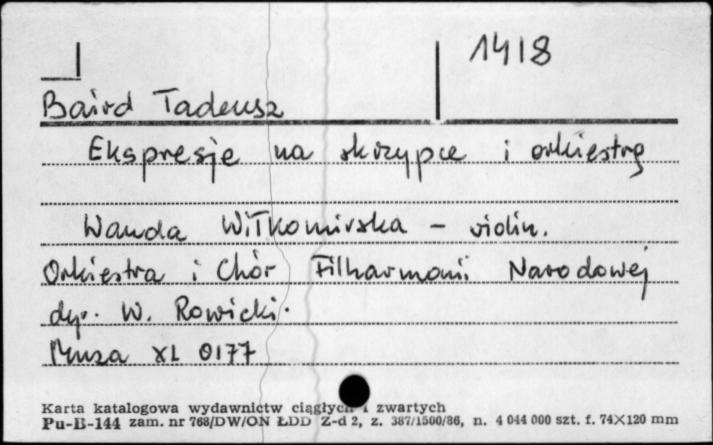 1418
Baird Tadeusz
Ekspresje na skrzypce i orkiestrę
Wanda Wiłkomirska - violin.
Orkiestra i Chór Filharmonii Narodowej
dyr. W. Rowicki.
Muza XL 0177
Karta katalogowa wydawnictw ciągłych i zwartych
Pu-B-144 zam. nr 768/DW/ON ŁDD Z-d 2, z. 387/1500/86, n. 4 044 000 szt. f. 74×120 mm